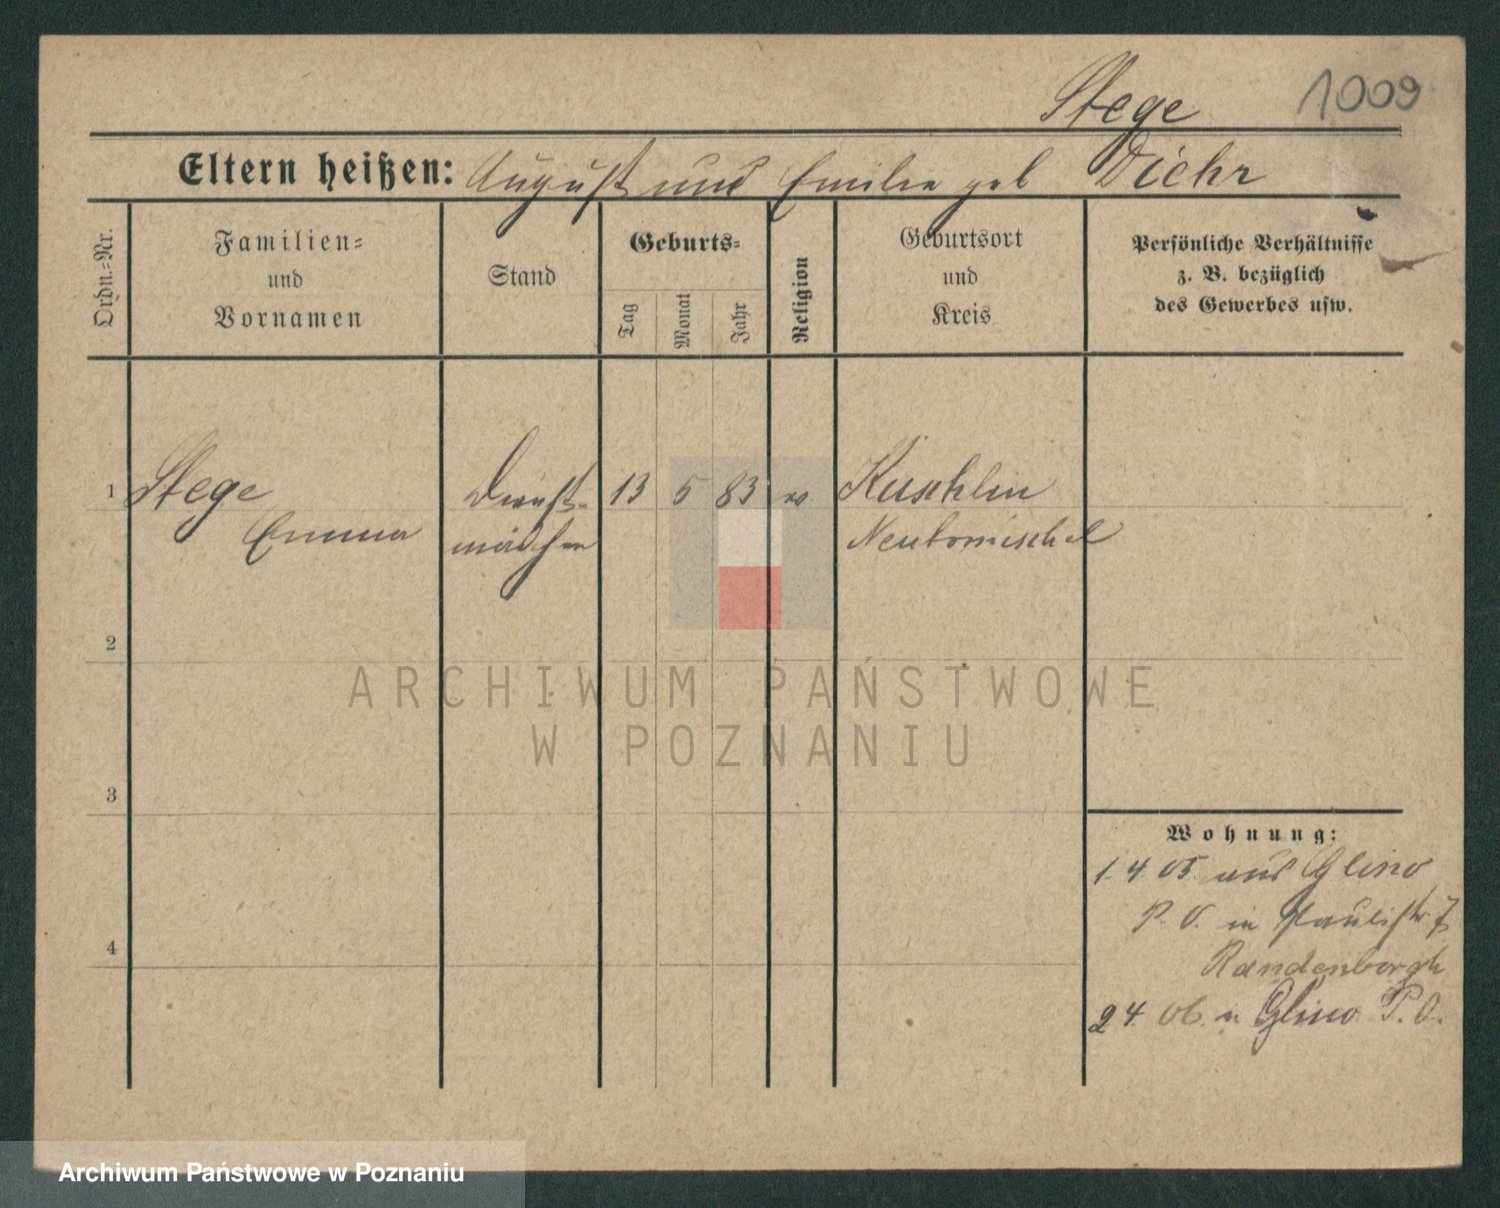 Stege
1009
Eltern heißen: August und Emilie geb Diehr
Ordn.=Nr.
Familien=
und
Vornamen
Stand
Geburts=
Tag
Monat
Jahr
Religion
Geburtsort
und
Kreis
Persönliche Verhältnisse
z. B. bezüglich
des Gewerbes usw.
1 Stege Dienst- 13 5 83 Kuschlin
Emma mädchen Neutomischel
2
ARCHIWUM PAŃSTWOWE
W POZNANIU
3
4
Wohnung:
1. 4. 05. aus Glino
P. O. in Paulistr. 7
Randenborgh
2 4. 06. n Glino P. O.
Archiwum Państwowe w Poznaniu